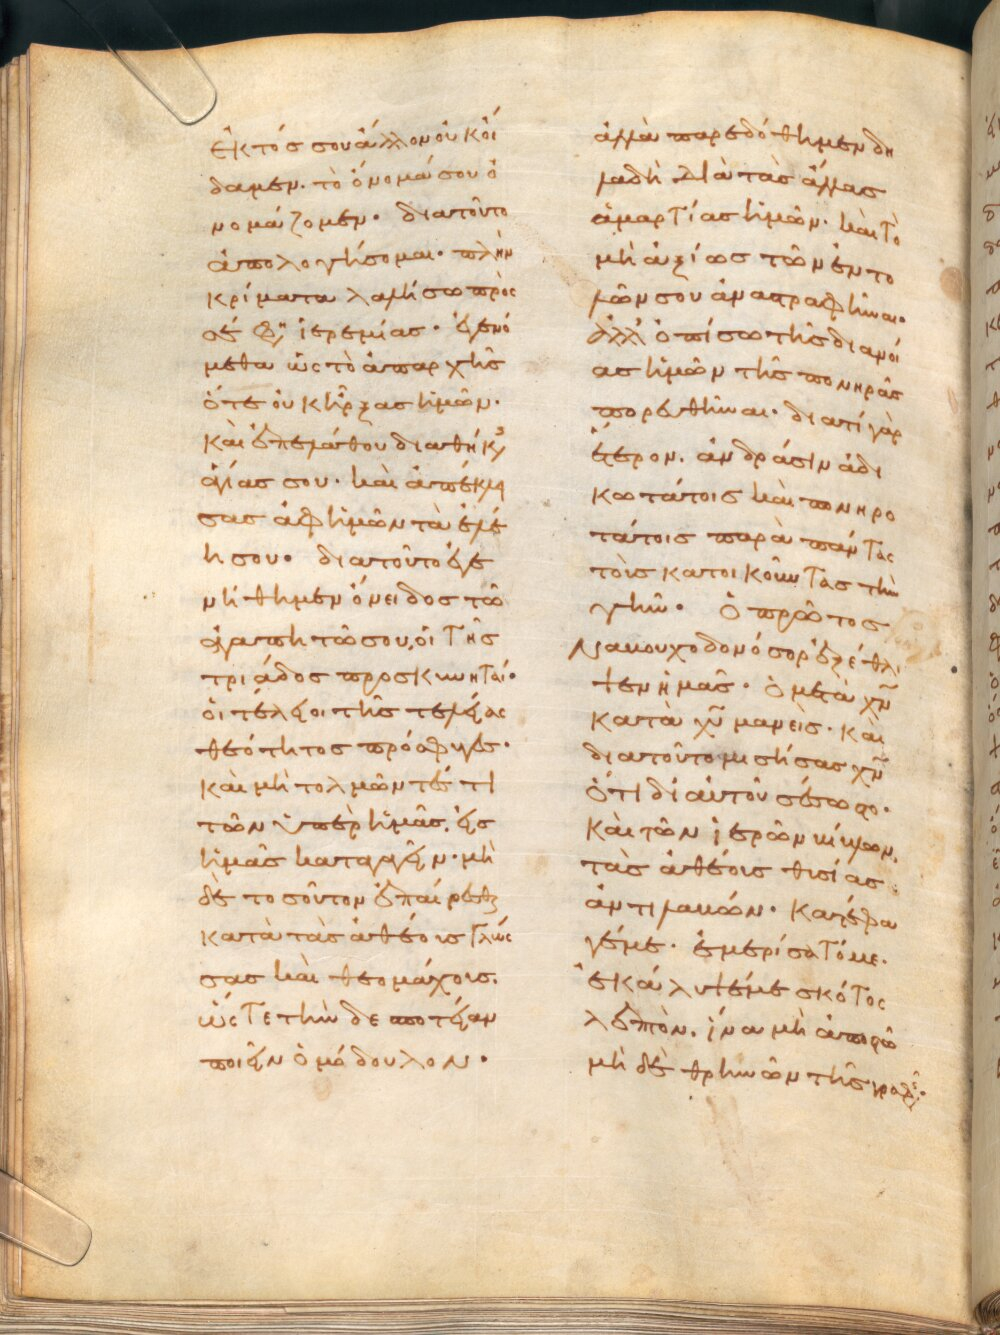 ἐκτόσ σου ἄλλον οὐκ οἴ
δαμεν. τὸ ὄνομά σου ὀ
νομάζομεν. διατοῦτο
ἀπολογήσομαι. πλὴν
κρίματα λαλήσω πρὸς
σέ φη ἱερεμίας. ἐγενό
μεθα ὡς τὸ ἀπαρχῆς
ὅτε οὐκ ἦρξας ἡμῶν.
καὶ ἐπελάθου διαθήκης
ἁγίας σου. καὶ ἀπέκλει
σας ἀφ ἡμῶν τὰ ἐλέ
η σου. διατοῦτο ἐγε
νήθημεν ὄνειδος τῶ
ἀγαπητῶ σου, οἱ τῆς
τριάδος προσκυνηταί.
οἱ τέλειοι τῆς τελείας
θεότητος πρόσφυγες.
καὶ μὴ τολμῶντές τι
τῶν ὑπὲρ ἡμᾶς, εἰς
ἡμᾶς κατάγειν. μὴ
δὲ τοσοῦτον ἐπαίρεσθαι
κατὰ τὰς ἀθέοις γλώς
σας καὶ θεομάχοις.
ὥς τε τὴν δεσποτείαν
ποιεῖν ὁμόδουλον.
ἀλλὰ παρεδόθημεν δη
λαδὴ διὰ τὰς ἄλλας
ἁμαρτίας ἡμῶν. καὶ τὸ
μὴ ἀξίως τῶν ἐντο
λῶν σου ἀναστραφῆναι.
ἀλλ ὀπίσω τῆς διανοί
ας ἡμῶν τῆς πονηρᾶς
πορευθῆναι. διατί γὰρ
ἕτερον. ἀνδράσιν ἀδι
κωτάτοις καὶ πονηρο
τάτοις παρὰ πάντας
τοὺς κατοικοῦντας τὴν
γῆν. ὁ πρῶτος
ναουχοδονόσορ ἐξέθλι
ψεν ἡμᾶς. ὁ μετὰ χν
κατὰ χυ μανεὶς. καὶ
διατοῦτο μισήσας χν
ὅτι δι αὐτοῦ σέσωστο.
καὶ τῶν ἱερῶν βίβλων.
τὰς ἀθέοις θυσίας
ἀντιλαβών. κατέφα
γέμε. ἐμερίσατό με.
ἐκάλυψέμε σκότος
λεπτὸν. ἵνα μὴ ἀποστῶ
μὴ δὲ θρηνῶν τῆς γραφῆς.